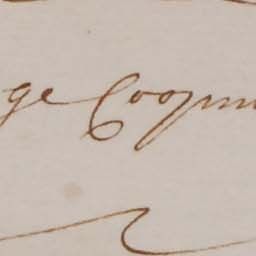 ge Coopm